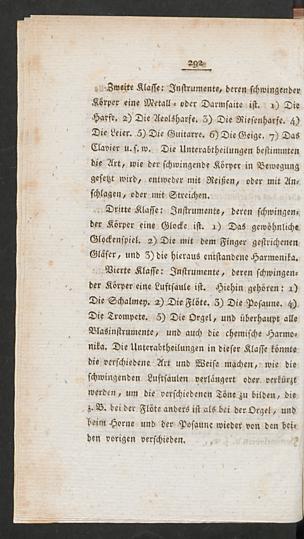 292
Zweite Klasse: Instrumente, deren schwingender
Körper eine Metall- oder Darmsaite ist. 1) Die
Harfe. 2) Die Aeolsharfe. 3) Die Riesenharfe. 4)
Die Leier. 5) Die Guitarre. 6) Die Geige. 7) Das
Clavier u. s. w. Die Unterabtheilungen bestimmten
die Art, wie der schwingende Körper in Bewegung
gesetzt wird, entweder mit Reißen, oder mit An-
schlagen, oder mit Streichen.
Dritte Klasse: Instrumente, deren schwingen-
der Körper eine Glocke ist. 1) Das gewöhnliche
Glockenspiel. 2) Die mit dem Finger gestrichenen
Gläser, und 3) die hieraus entstandene Harmonika.
Vierte Klasse: Instrumente, deren schwingen-
der Körper eine Luftsäule ist. Hiehin gehören: 1)
Die Schalmey. 2) Die Flöte. 3) Die Posaune. 4)
Die Trompete. 5) Die Orgel, und überhaupt alle
Blasinstrumente, und auch die chemische Harmo-
nika. Die Unterabtheilungen in dieser Klasse könnte
die verschiedene Art und Weise machen, wie die
schwingenden Luftsäulen verlängert oder verkürzt
werden, um die verschiedenen Töne zu bilden, die
z. B. bei der Flöte anders ist als bei der Orgel, und
beim Horne und der Posaune wieder von den bei-
den vorigen verschieden.